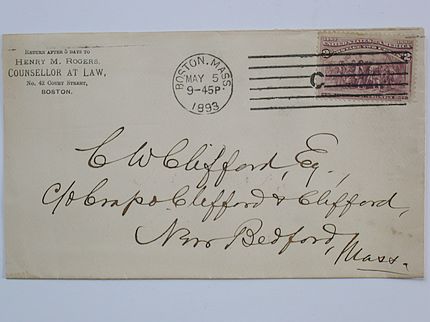 RETURN AFTER 5 DAYS TO
HENRY M. ROGERS,
COUNSELLOR AT LAW,
No. 42 COURT STREET,
BOSTON.
BOSTON, MASS.
MAY 5
9-45P
1893
C
UNITED STATES OF AMERICA
2
C W Clifford, Esq.,
c/o Crapo Clifford & Clifford,
New Bedford,
Mass.